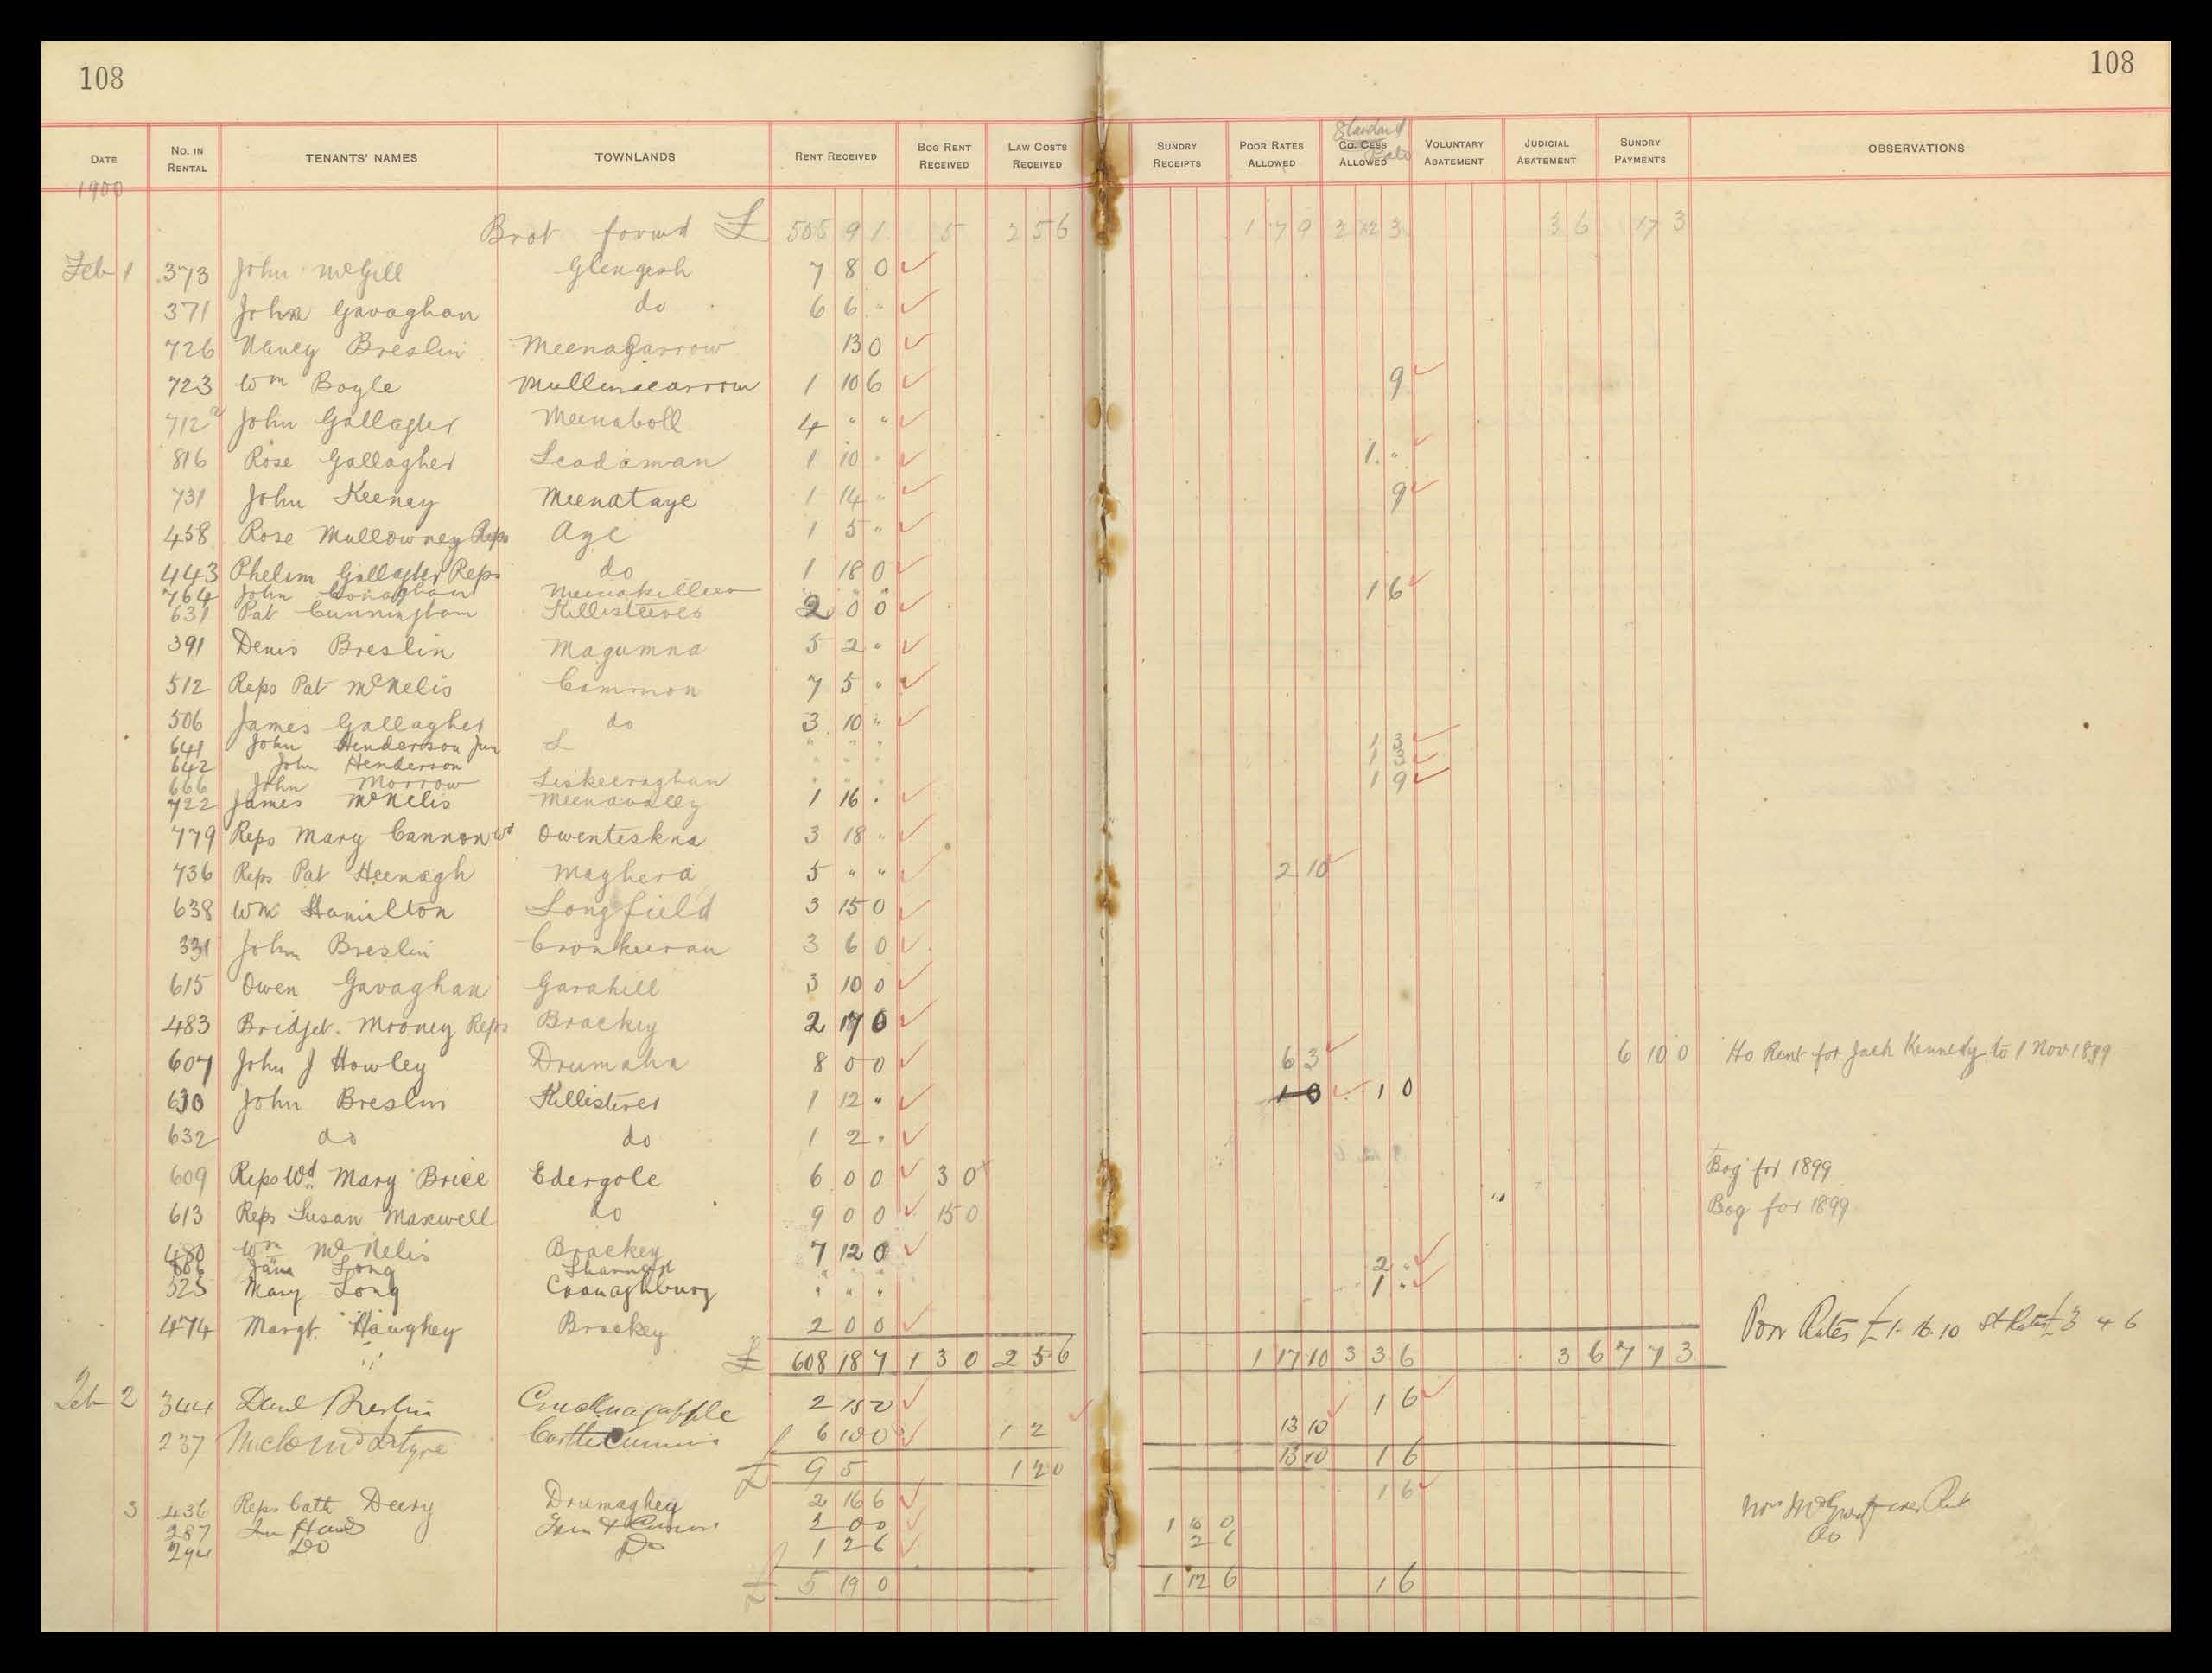 108 108
DATE No. IN RENTAL TENANTS' NAMES TOWNLANDS RENT RECEIVED BOG RENT RECEIVED LAW COSTS RECEIVED SUNDRY RECEIPTS POOR RATES ALLOWED Standard Rate Co. CESS ALLOWED VOLUNTARY ABATEMENT JUDICIAL ABATEMENT SUNDRY PAYMENTS OBSERVATIONS
1900
Brot forwd £ 505 9 1 5 2 5 6 1 7 9 2 12 3 3 6 17 3
Feb 1 373 John McGill Glengesh 7 8 0
371 John Gavaghan do 6 6 "
726 Nancy Breslin Meenagarrow 13 0
723 Wm Boyle Mullinacarrow 1 10 6 9
712a John Gallagher Meenaboll 4 " "
816 Rose Gallagher Scadaman 1 10 " 1 "
731 John Keeney Meenataye 1 14 " 9
458 Rose Mullowney Reps Age 1 5 "
443 Phelim Gallagher Reps do 1 18 0
764 John Conaghan Meenakilleen " " " 1 6
631 Pat Cunningham Killisteeves 2 0 0
391 Denis Breslin Magumna 5 2 "
512 Reps Pat McNelis Common 7 5 "
506 James Gallagher do 3 10 "
641 John Henderson Jun " " " 1 3
642 John Henderson " " " 1 3
666 John Morrow Liskeeraghan " " " 1 9
722 James McNelis Meenavally 1 16 "
779 Reps Mary Cannon Wd Owenteskna 3 18 "
736 Reps Pat Heenagh Maghera 5 " " 2 10
638 Wm Hamilton Longfield 3 15 0
331 John Breslin Cronkeeran 3 6 0
615 Owen Gavaghan Garahill 3 10 0
483 Bridget Mooney Reps Brackey 2 17 0
607 John J Howley Drumaha 8 0 0 6 3 6 10 0 Ho Rent for Jack Kennedy to 1 Nov 1899
630 John Breslin Killisteves 1 12 " 1 0 1 0
632 do do 1 2 "
609 Reps Wd Mary Brice Edergole 6 0 0 3 0 Bog for 1899
613 Reps Susan Maxwell do 9 0 0 15 0 Bog for 1899
480 Wm McNelis Brackey 7 12 0
Jane Long " " " 2 "
525 Mary Long Cranaghburg " " " 1 "
474 Margt. Haughey Brackey 2 0 0 Poor Rates £1. 16. 10 St Rates £3 4 6
£ 608 18 7 1 3 0 2 5 6 1 17 10 3 3 6 3 6 7 7 3
Feb 2 344 Danl Breslin Crucknagapple 2 15 0 1 6
237 Michl McIntyre Castlecumins 6 10 0 1 2 13 10
£ 9 5 1 2 0 13 10 1 6
3 436 Reps Cath Deery Drumaghey 2 16 6 1 6
287 In Hand 2 0 0 1 10 0
294 Do Do 1 2 6 2 6 Do
£ 5 19 0 1 12 6 1 6